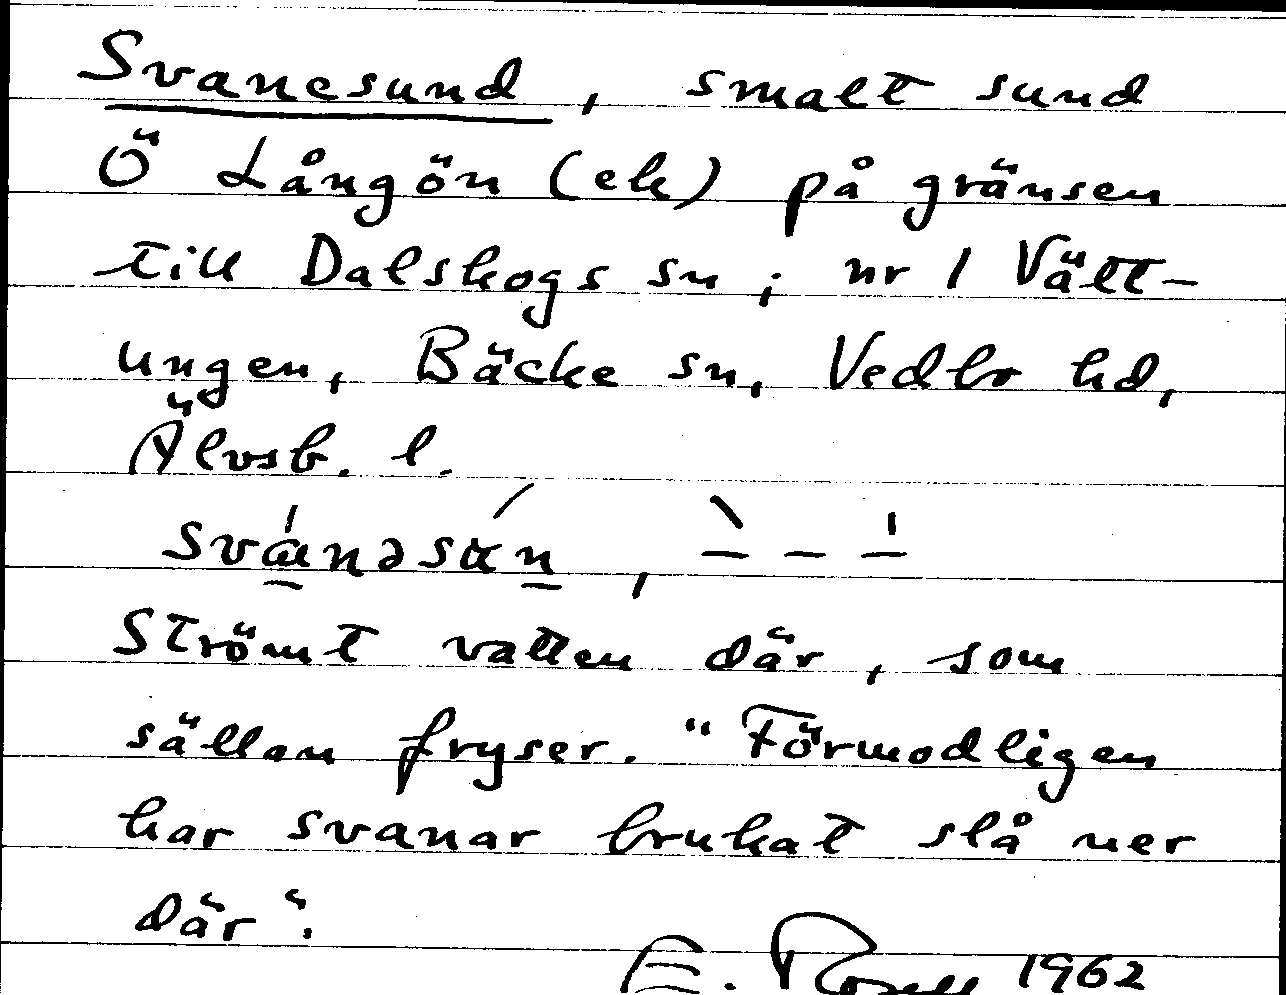 Svanesund, smalt sund
Ö Långön (ek) på gränsen
till Dalskogs sn; nr 1 Vätt-
ungen, Bäcke sn, Vedbo hd,
Älvsb. l.
Strömt vatten där, som
sällan fryser. "Förmodligen
har svanar brukat slå ner
där".
E. 1962